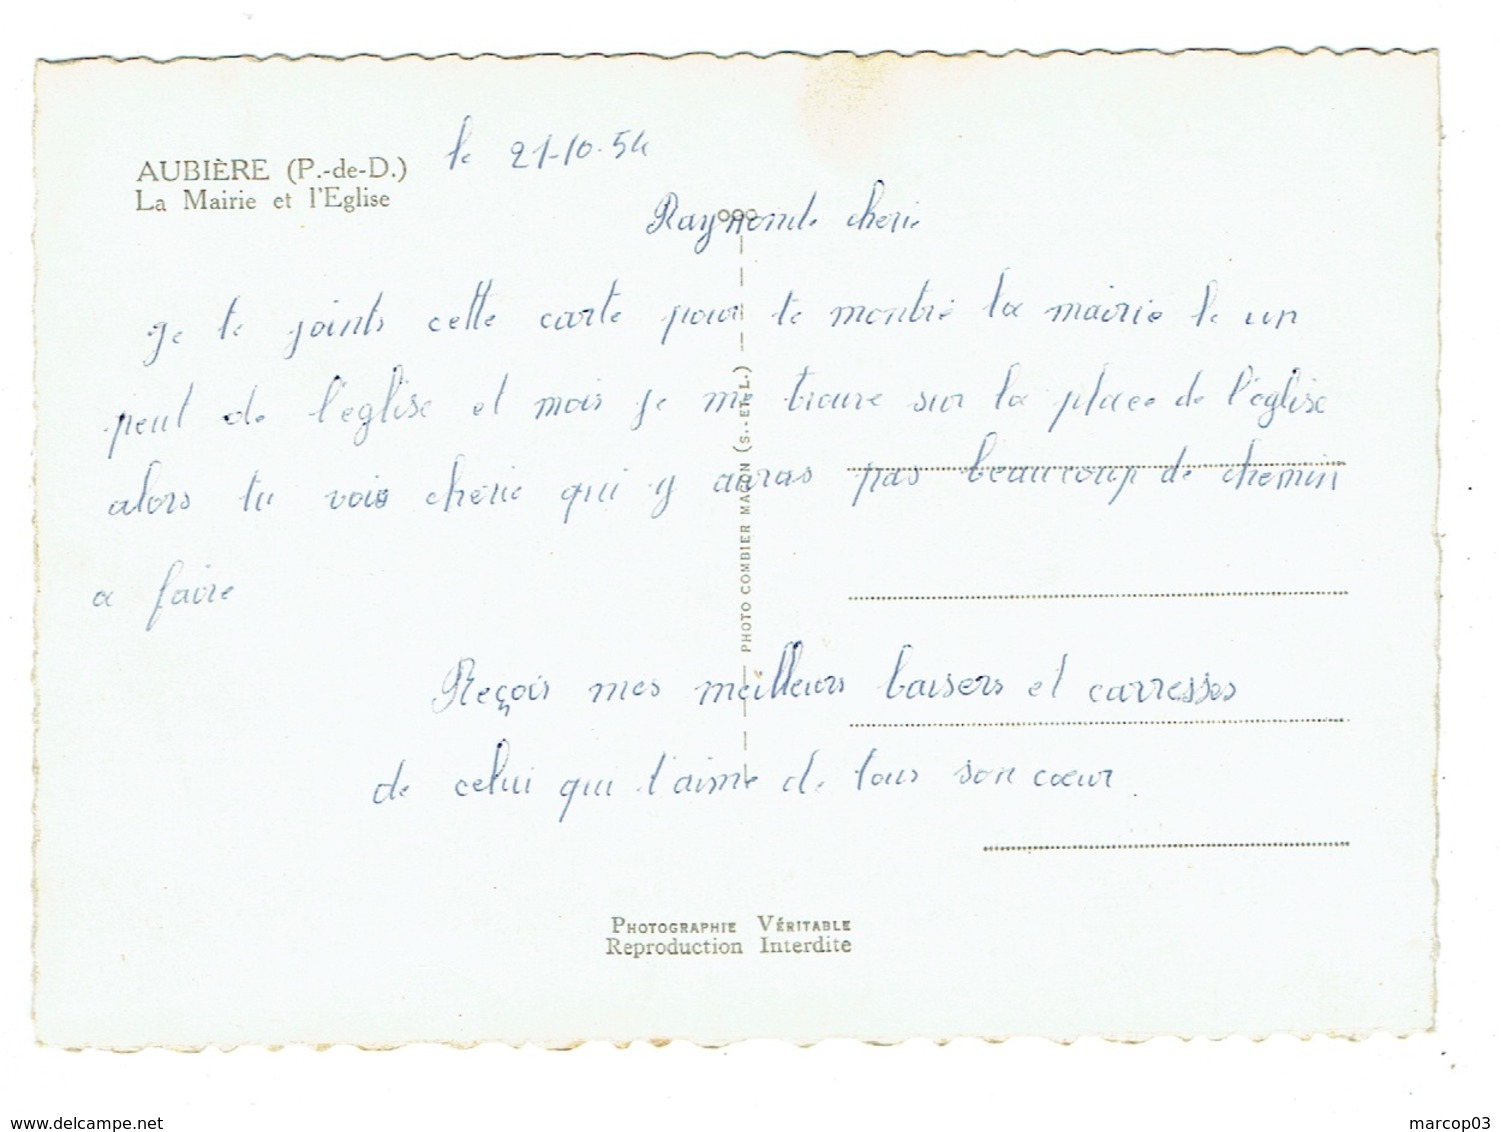 AUBIÈRE (P.-de-D.)
La Mairie et l'Eglise
le 21-10-54
Raymonde cherie
Je te joints cette carte pour te montré la mairie le un
peut de l'eglise et mois je me trouve sur la place de l'église
alors tu vois cherie qui y auras pas beaucoup de chemin
a faire
Reçois mes meilleurs baisers et carresses
de celui qui t'aime de tous son cœur.
PHOTO COMBIER MACON (S.-ET-L.)
PHOTOGRAPHIE VÉRITABLE
Reproduction Interdite
www.delcampe.net
marcop03